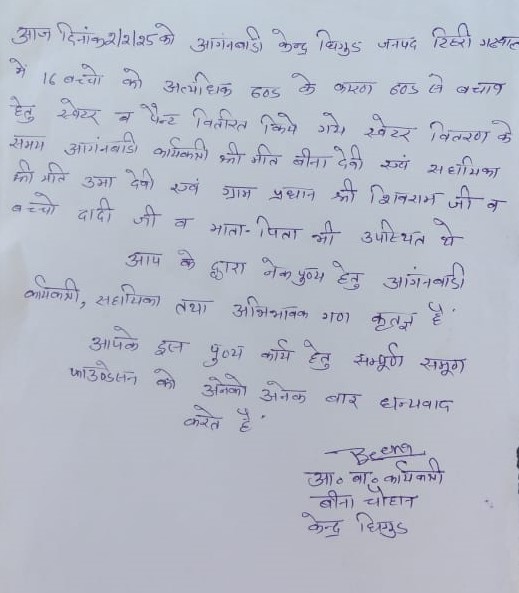 आज दिनांक 2/2/25 को आगंनबाडी केन्द्र धिगुड जनपद टिहरी गढवाल
में 16 बच्चो को अत्यधिक ठण्ड के कारण ठण्ड से बचाव
हेतु स्वेटर व पैन्ट वितरित किये गये स्वेटर वितरण के
समय आगंनबाडी कार्यकर्त्री श्री मति बीना देवी एवं सहायिका
श्री मति उमा देवी एवं ग्राम प्रधान श्री शिवराम जी व
बच्चो दादी जी व माता-पिता भी उपस्थित थे
आप के द्वारा नेक पुण्य हेतु आगंनबाडी
कार्यकर्त्री, सहायिका तथा अभिभावक गण कृतज्ञ है.
आपके इस पुण्य कार्य हेतु सम्पूर्ण समूण
फाउण्डेसन को अनेको अनेक बार धन्यवाद
करते है.
Beena
आ० बा० कार्यकर्त्री
बीना चौहान
केन्द्र धिगुड